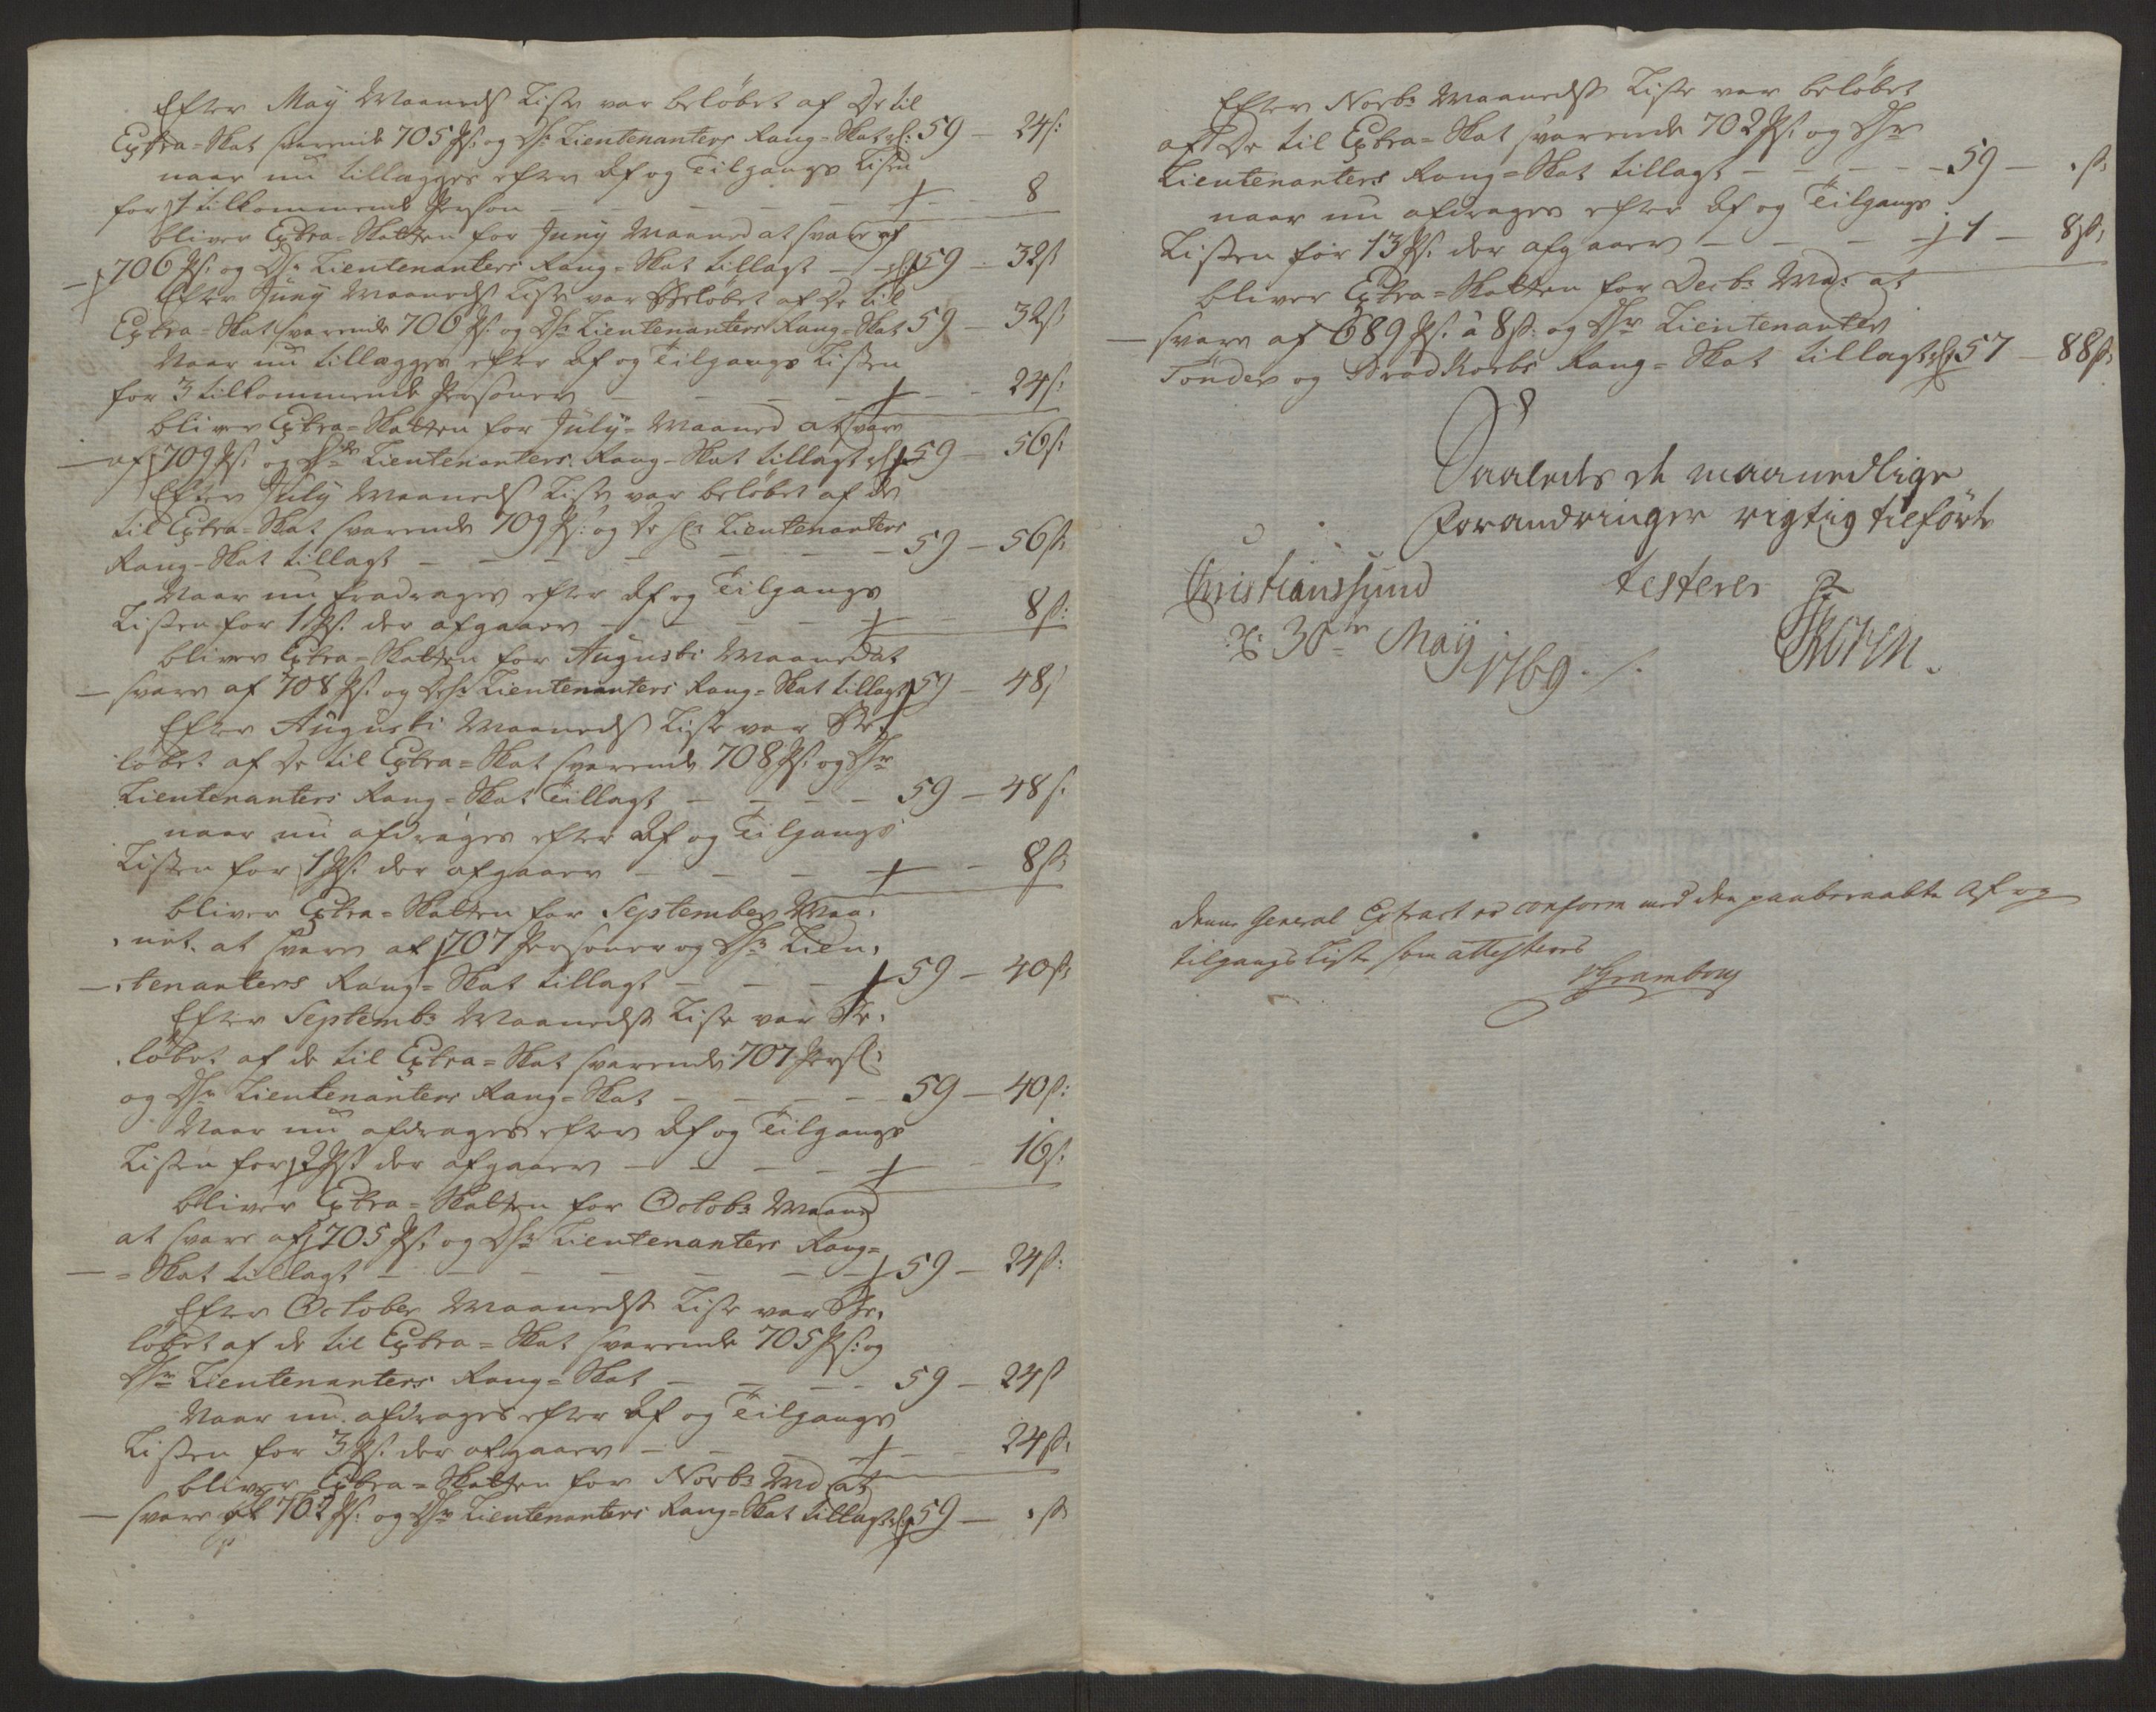 Efter May Maaneds Liste var beløbet af De til
Extra-Skat svarende 705 Ps: og Dhr: Lieutenanters Rang-Skat rd: 59 - 24 s:
naar nu tillægges efter Af og Tilgangs Listen
for 1 tilkommende Person - - - - - - 8
bliver Extra-Skatten for Juny Maaned at svare af
706 Ps: og Dhr: Lieutenanters Rang-Skat tillagt - rd 59 - 32 s
Efter Juny Maaneds Liste var Beløbet af De til
Extra-Skat svarende 706 Ps: og Dhr: Lieutenanters Rang-Skat 59 - 32 s
Naar nu tillægges efter Af og Tilgangs Listen
for 3 tilkommende Personer - - - - - 24 s:
bliver Extra-Skatten for July-Maaned at svare
af 709 Ps: og Dhr: Lieutenanters Rang-Skat tillagt rd 59 - 56 s:
Efter July Maaneds Liste var beløbet af de
til Extra-Skat svarende 709 Ps: og De Hr: Lieutenanters
Rang-Skat tillagt - - - - - 59 - 56 s
Naar nu fradrages efter Af og Tilgangs
Listen for 1 Ps: der afgaaer - - - - 8 s:
bliver Extra-Skatten for Augusti Maaned at
svare af 708 Ps: og Dhr: Lieutenanters Rang-Skat tillagt 59 - 48 s
Efter Augusti Maaneds Liste var Be,
løbet af De til Extra-Skat svarende 708 Ps: og Dhr
Lieutenanters Rang-Skat Tillagt - - - - 59 - 48 s:
naar nu afdrages efter Af og Tilgangs
Listen for 1 Ps: der afgaaer - - - - - 8 s
bliver Extra-Skatten for September Maa,
net at svare af 707 Personer og Dhr: Lieu,
tenanters Rang-Skat tillagt - - - 59 - 40 s
Efter Septembr: Maaneds Liste var Be,
løbet af de til Extra-Skat svarende 707 Pers:
og Dhr Lieutenanters Rang-Skat - - - - 59 - 40 s:
Naar nu afdrages efter Af og Tilgangs
Listen for 2 Ps: der afgaaer - - - - - 16 s:
bliver Extra-Skatten for Octobr: Maaned
at svare af 705 Ps: og Dhr: Lieutenanters Rang-
-Skat tillagt - - - - - - 59 - 24 s:
Efter October Maaneds Liste var Be,
løbet af de til Extra-Skat svarende 705 Ps: og
Dhr: Lieutenanters Rang-Skat - - - - 59 - 24 s
Naar nu afdrages efter Af og Tilgangs
Listen for 3 Ps: der afgaaer - - - - 24 s,
bliver Extra-Skatten for Novbr: Md at
svare af 702 Ps: og Dhr Lieutenanters Rang-Skat tillagt rd 59 - , s
Efter Novbr: Maaneds Liste var beløbet
af De til Extra-Skat svarende 702 Ps: og Dhr
Lieutenanters Rang-Skat tillagt - - - - - 59 - , s
naar nu afdrages efter Af og Tilgangs
Listen for 13 Ps: der afgaaer - - - - 1 - 8 s,
bliver Extra-Skatten for Decbr: Md: at
svare af 689 Ps: à 8 s: og Dhr Lieutenanter
Tønder og Brodkorbs Rang-Skat tillagt rd 57 - 88 s,
Saaleds de maanedlige
Forandringer rigtig tilførte
Christianssund testerer
d: 30te May
1769 ./.
denne General Extract er conform med den paaberaabte Af og
tilgangs Liste som attesteres